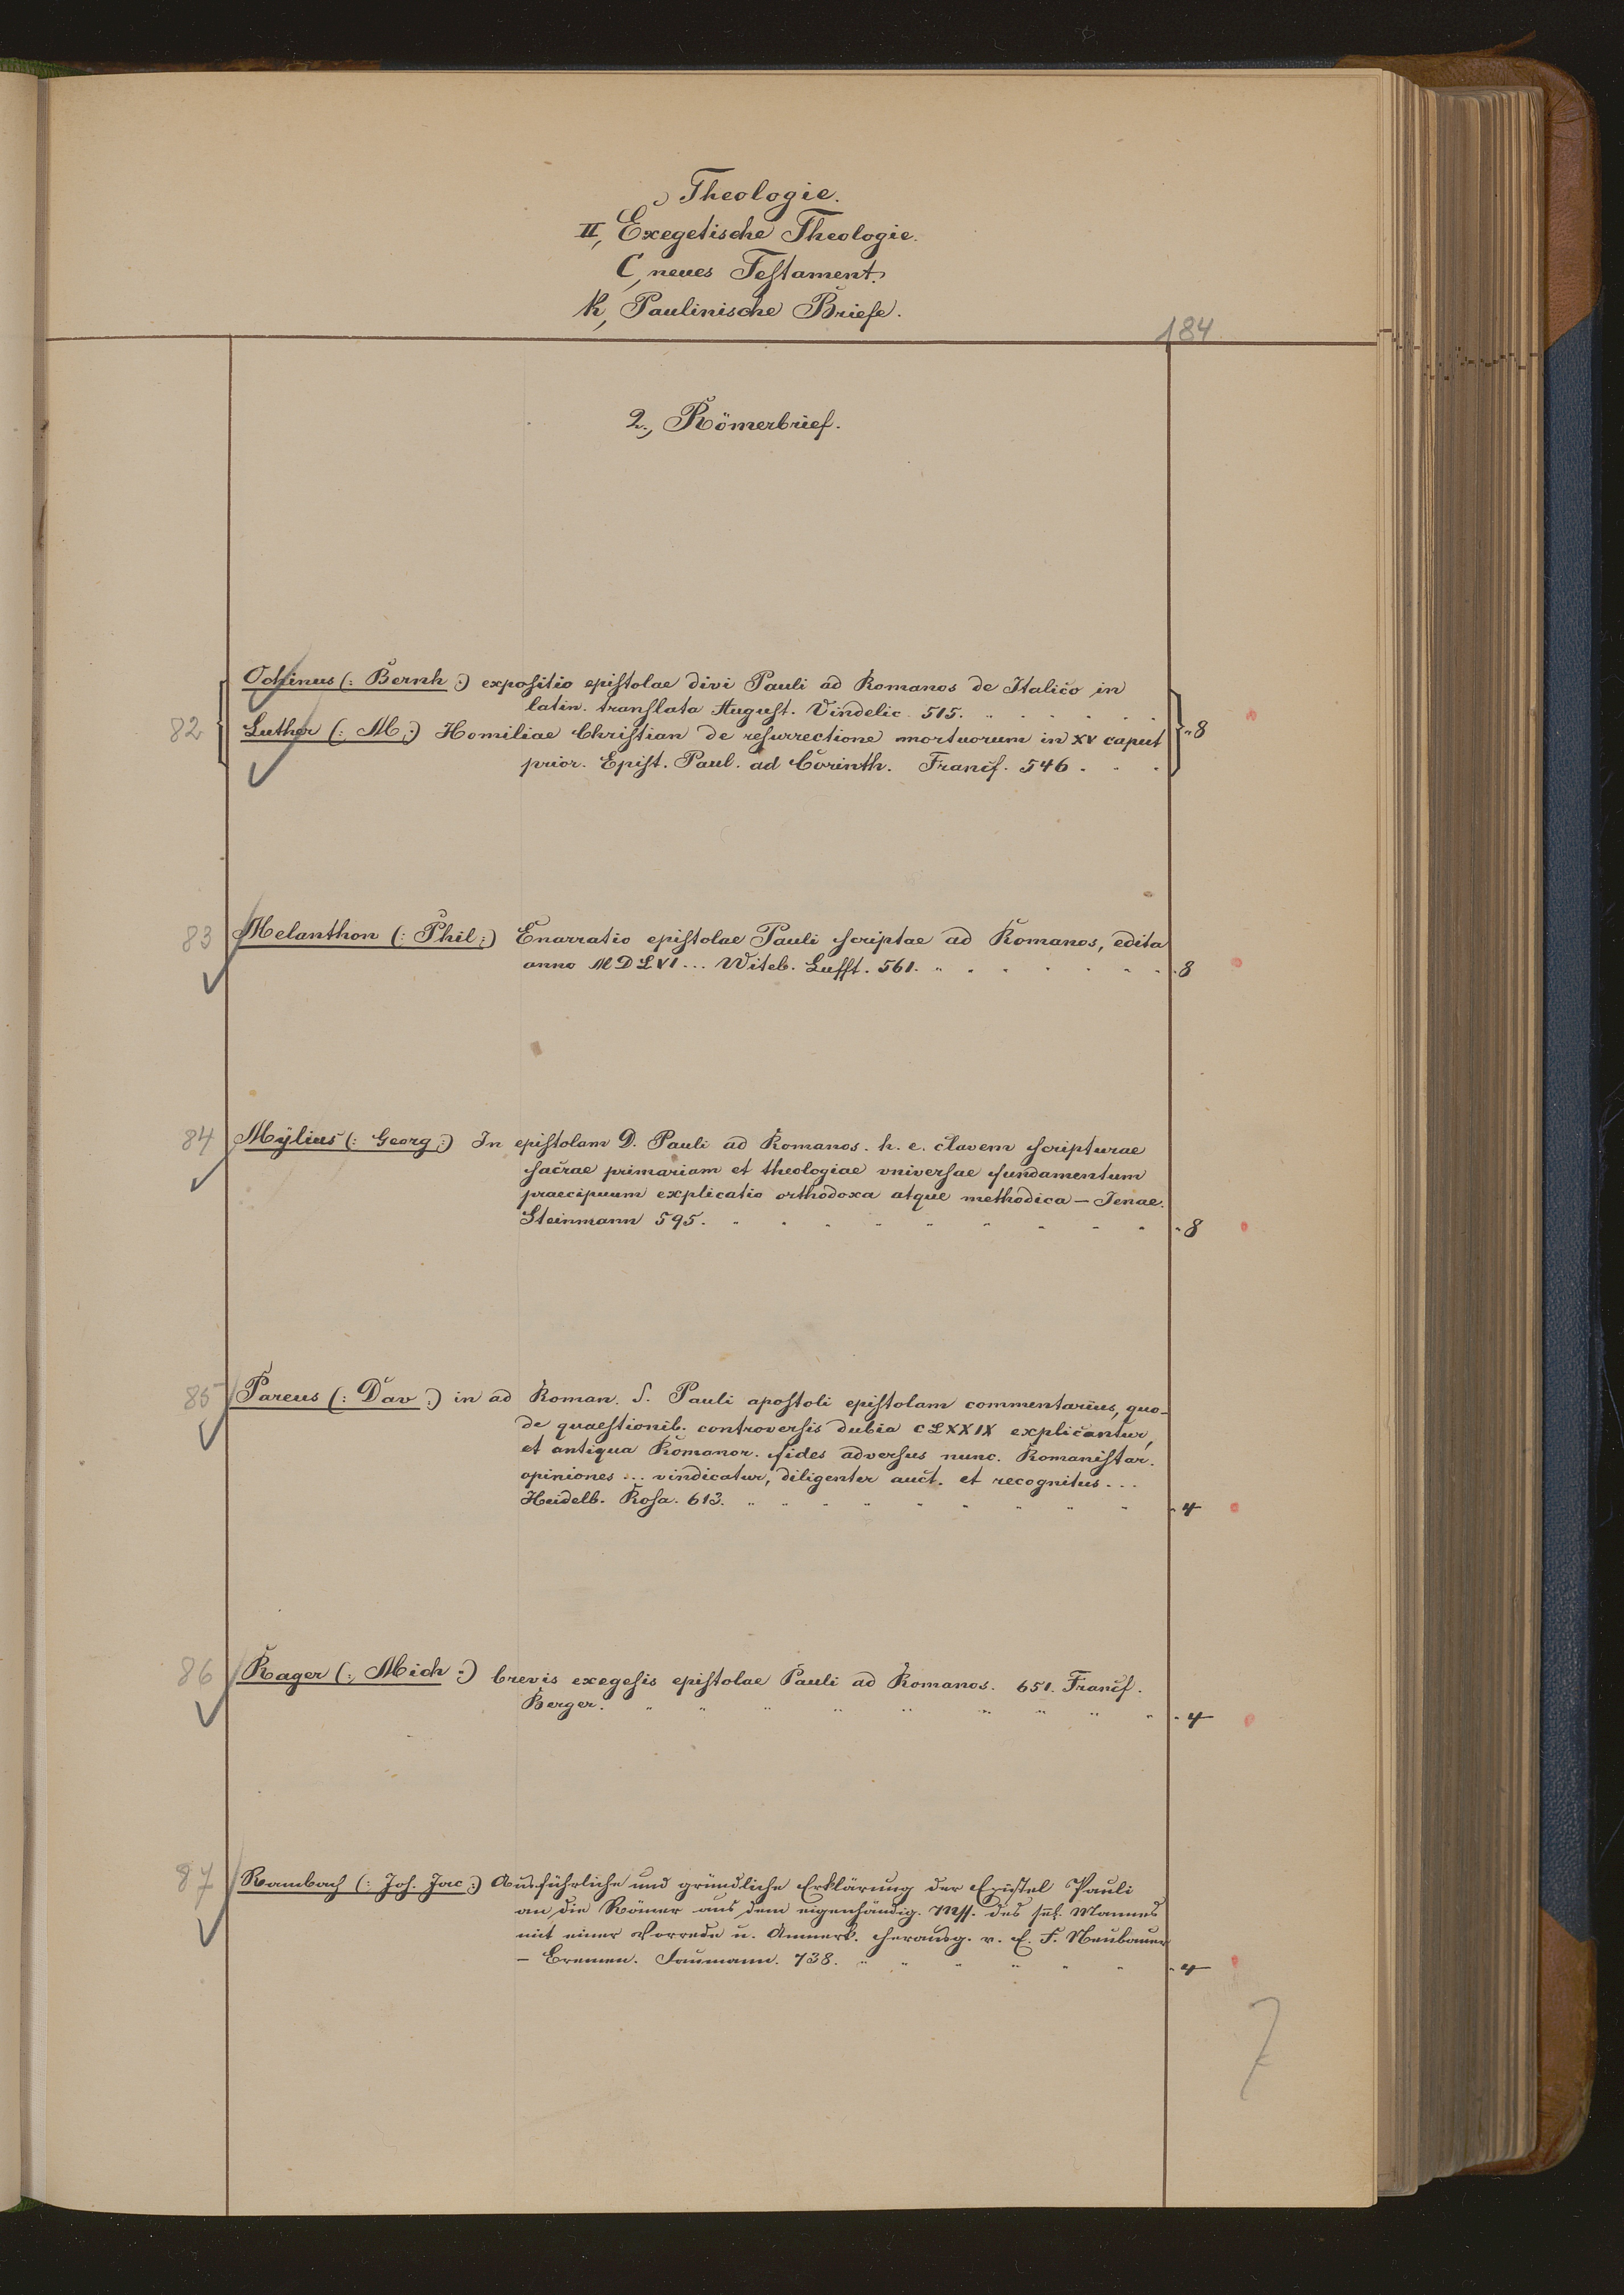 Theologie.
II, Exegetische Theologie.
C, neues Testament.
k, Paulinische Briefe.
184.
2., Römerbrief.
82
Ochinus (: Bernh :) expositio epistolae divi Pauli ad Romanos de Italico in
latin. translata August. Vindelic. 515.
Luther (: M :) Homiliae Christian de resurrectione mortuorum in XV caput
prior. Epist. Paul. ad Corinth. Francf. 546.
8
83 Melanthon (: Phil :) Enarratio epistolae Pauli scriptae ad Romanos, edita
anno MDLVI... Witeb. Lufft. 561. 8
84 Mÿlius (: Georg :) In epistolam D. Pauli ad Romanos. h. e. clavem scripturae
sacrae primariam et theologiae vniversae fundamentum
praecipuum explicatio orthodoxa atque methodica – Jenae.
Steinmann 595. 8
85 Pareus (: Dav :) in ad Roman. S. Pauli apostoli epistolam commentarius, quo-
de quaestionib. controversis dubia CLXXIX explicantur,
et antiqua Romanor. fides adversus nunc. Romanistar.
opiniones... vindicatur, diligenter auct. et recognitus...
Heidelb. Rosa. 613. 4
86 Rager (: Mich :) brevis exegesis epistolae Pauli ad Romanos. 651. Francf.
Berger. 4
87 Rambach (: Joh. Jac :) Ausführliche und gründliche Erklärung der Epistel Pauli
an die Römer aus dem eigenhändig. Mss. des sel. Mannes
mit einer Vorrede u. Anmerk. herausg. v. E. F. Neubauer
– Bremen. Saumann. 738. 4
7